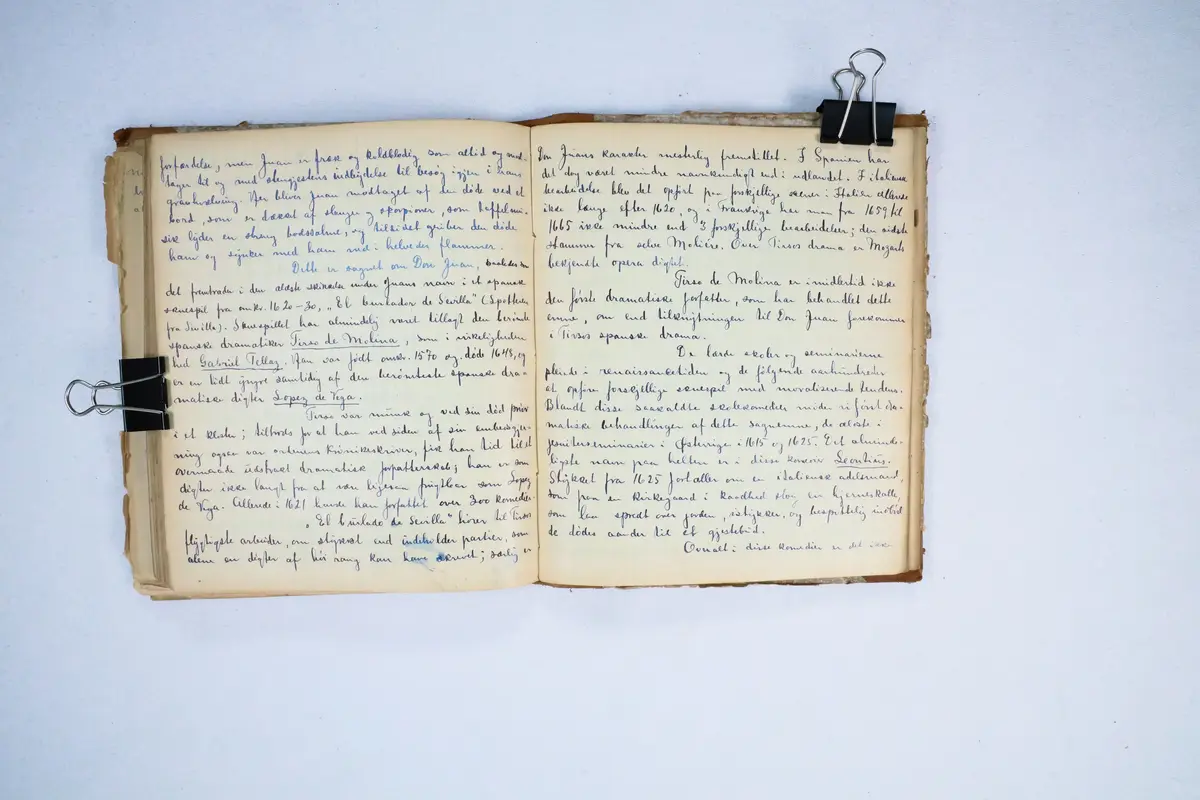 forfærdelse, men Juan er fræk og koldblodig som altid og mod-
tager til og med stengjestens indbydelse til besøg igjen i hans
gravhvelving. Her bliver Juan modtaget af den døde ved et
bord, som er dækket af slanger og skorpioner, som taffelmu-
sik lyder en streng bodssalme, og tilsidst griber den døde
ham og synker med ham ned i helvedes flammer.
Dette er sagnet om Don Juan, saaledes som
det fremtræder i den ældste skikkelse under Juans navn i et spansk
skuespil fra omkr. 1620-30, „El burlador de Sevilla" (Spotteren
fra Sevilla). Skuespillet har almindelig været tillagt den berømte
spanske dramatiker Tirso de Molina, som i virkeligheden
hed Gabriel Tellez. Han var født omkr. 1570 og døde 1648, og
er en lidt yngre samtidig af den berømteste spanske dra-
matiske digter Lopez de Vega.
Tirso var munk og ved sin død prior
i et kloster; tiltrods for at han ved siden af sin embedsgjer-
ning ogsaa var ordenens krønikeskriver, fik han tid til et
overmaade udstrakt dramatisk forfatterskab; han er som
digter ikke langt fra at være ligesaa frugtbar som Lopez
de Vega. Allerede i 1621 havde han forfattet over 300 komedier.
„El burlado de Sevilla" hører til Tirsos
flygtigste arbeider, om stykket end indeholder partier, som
alene en digter af høi rang kan have skrevet; særlig er
Don Juans karakter mesterlig fremstillet. I Spanien har
det dog været mindre navnkundigt end i udlandet. I italiensk
bearbeidelse blev det opført paa forskjellige scener i Italien allerede
ikke længe efter 1620, og i Frankrige har man fra 1659 til
1665 ikke mindre end 3 forskjellige bearbeidelser; den sidste
stammer fra selve Molière. Over Tirsos drama er Mozarts
bekjendte opera digtet.
Tirso de Molina er imidlertid ikke
den første dramatiske forfatter, som har behandlet dette
emne, om end tilknytningen til Don Juan forekommer
i Tirsos spanske drama.
De lærde skoler og seminarierne
pleiede i renaissancetiden og de følgende aarhundreder
at opføre forskjellige skuespil med moraliserende tendens.
Blandt disse saakaldte skolekomedier møder vi først dra-
matiske behandlinger af dette sagnemne, de ældste i
jesuiterseminarier i Østerrige i 1615 og 1625. Det alminde-
ligste navn paa helten er i disse Leontius.
Stykket fra 1625 fortæller om en italiensk adelsmand,
som paa en kirkegaard i kaadhed slog en hjerneskalle,
som laa spredt over jorden, istykker, og bespottelig indbød
de dødes aander til et gjestebud.
Overalt i disse komedier er det ikke